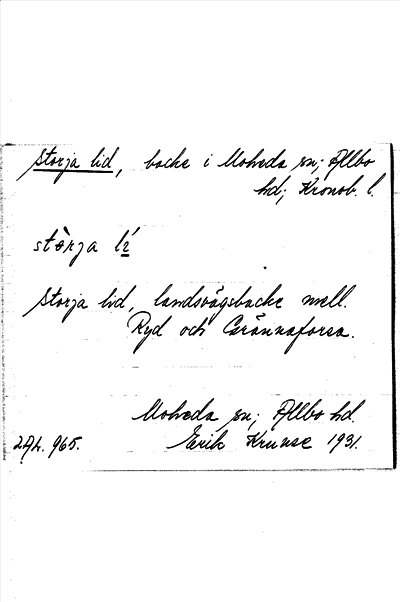 Storja lid, backe i Moheda sn; Allbo
hd; Kronob. l.
stòrja lí
Storja lid, landsvägsbacke mell.
Ryd och Grännaforsa.
Moheda sn; Allbo hd.
Erik Kruuse 1931.
965.